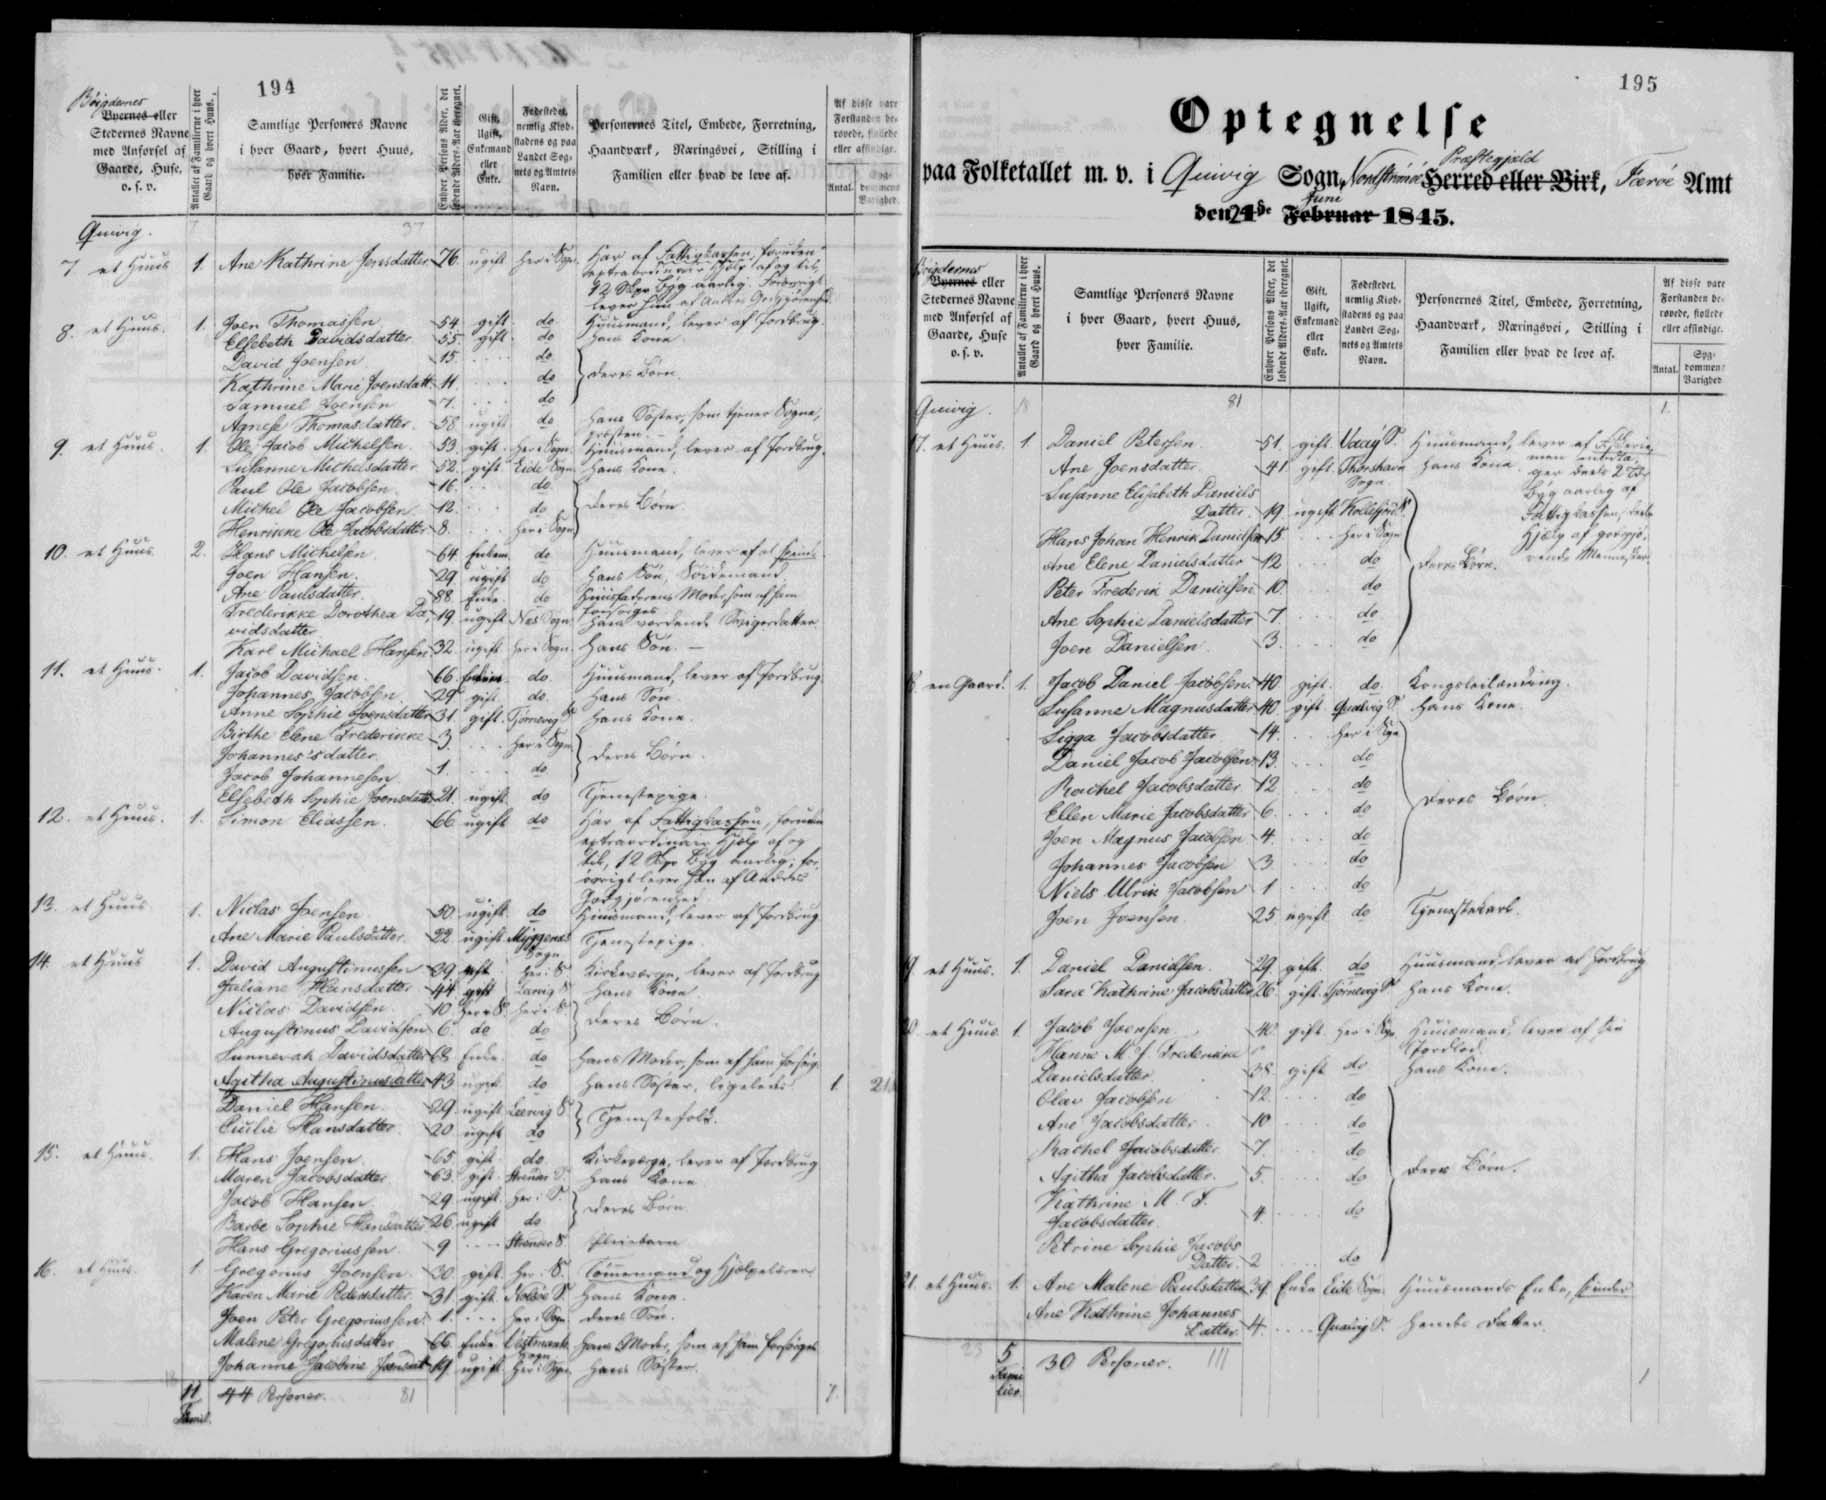 194
Bøigdernes
Byernes eller
Stedernes Navne
med Anførsel af
Gaarde, Huse,
o. s. v.
Antallet af Familierne i hver
Gaard og hvert Huus.
Samtlige Personers Navne
i hver Gaard, hvert Huus,
hver Familie.
Enhver Persons Alder, det
løbende Alders-Aar iberegnet.
Gift,
Ugift,
Enkemand
eller
Enke.
Fødestedet,
nemlig Kiøb-
stadens og paa
Landet Sog-
nets og Amtets
Navn.
Personernes Titel, Embede, Forretning,
Haandværk, Næringsvei, Stilling i
Familien eller hvad de leve af.
Af disse vare
Forstanden be-
røvede, fiollede
eller afsindige.
Antal.
Syg-
dommens
Varighed.
Qvivig. 37
7 et Huus 1. Ane Kathrine Jensdatter 76. ugift her i Sogn. Har af Fattigkassen, foruden
extraordinair Hjelp af og til,
12 Skpr Byg aarlig. Forøvrigt
lever hun af Andres Godgjørenhed
8. et Huus. 1. Joen Thomassen 54 gift do Huusmand, lever af Jordbrug.
Elsebeth Davidsdatter 55 gift do hans Kone
David Joensen 15 do
Kathrine Marie Joensdatt. 11 do deres Børn.
Samuel Joensen 7. do
Agnese Thomasdatter 58 ugift do hans Søster, som tjener Sogne-
præsten.
9. et Huus. 1. Ole Jacob Michelsen 53. gift. her i Sogn Huusmand, lever af Jordbrug.
Susanne Michelsdatter 52. gift Eide Sogn hans Kone.
Paul Ole Jacobsen 16. do
Michel Ole Jacobsen 12. do deres Børn.
Henrikke Ole Jacobsdatter 8. her i Sogn
10. et Huus 2. Hans Michelsen 64 Enkem. do
Joen Hansen. 29 ugift do hans Søn,
Ane Paulsdatter. 88 Enke. do Huusfaderens Moder, som af ham
forsørges
Frederikke Dorothea Da- 19. ugift Næs Sogn hans vordende Svigerdatter.
vidsdatter
Karl Michael Hansen 32 ugift her i Sogn. hans Søn. —
11. et Huus. 1. Jacob Davidsen 66 do. Huusmand, lever af Jordbrug
Johannes Jacobsen 29 gift do. hans Søn
Anne Sophie Joensdatter 31. gift. Tjørnevig S. hans Kone.
Birthe Elene Frederikke 3. her i Sogn
Johannes'sdatter. deres Børn.
Jacob Johannesen 1. do
Elsebeth Sophie Joensdatter 21. ugift do Tjenestepige.
12. et Huus. 1. Simon Eliassen. 66 ugift do Har af Fattigkassen, foruden
extraordinair Hjelp af og
til, 12 Skpr Byg aarlig; for-
øvrigt lever han af Andres
Godgjørenhed
13. et Huus 1. Niclas Joensen 50. ugift do Huusmand, lever af Jordbrug
Ane Marie Paulsdatter. 22 ugift Myggenæs Tjenestepige.
Sogn
14. et Huus 1. David Augustinussen 39 gift her i S. Kirkeværge, lever af Jordbrug
Juliane Hansdatter 44 gift S. hans Kone.
Niclas Davidsen. 10 her i S.
Augustinus Davidsen 6. do do deres Børn.
Sunnevah Davidsdatter 68 Enke. do hans Moder, som af ham forsørg.
Agitha Augustinusdatter 43 ugift do hans Søster, ligeledes 1. 21
Daniel Hansen. 29. ugift Leervig S.
Cicilie Hansdatter. 20 ugift do Tjenestefolk.
15. et Huus. 1. Hans Joensen. 65 gift. do Kirkeværge, lever af Jordbrug
Maren Jacobsdatter 63. gift. Strømnæs S. hans Kone
Jacob Hansen 29 ugift. her i S.
Barbe Sophie Hansdatter 26. ugift do deres Børn.
Hans Gregoriussen. 9 Strømnæs S. Pleiebarn
16. et Huus. 1. Gregorius Joensen. 30. gift her i S. Tømmermand og Hjælpelærer
Karen Marie 31. gift. S. hans Kone.
Joen Peter Gregoriussen. 1. her i Sogn deres Søn.
Malene Gregoriusdatter 66 Enke Vestmanh. hans Moder, som af ham forsørges
Sogn
Johanne Jacobine Joensdat 19 ugift her i Sogn. hans Søster.
11 44 Personer. 81 7.
Famil.
195
Optegnelse
paa Folketallet m. v. i Qvivig Sogn, Nordstrømø Præstegjeld Herred eller Birk, Færøe Amt
den 24de Juni Februar 1845.
Bøigdernes
Byernes eller
Stedernes Navne
med Anførsel af
Gaarde, Huse
o. s. v.
Antallet af Familierne i hver
Gaard og hvert Huus.
Samtlige Personers Navne
i hver Gaard, hvert Huus,
hver Familie.
Enhver Persons Alder, det
løbende Alders-Aar iberegnet.
Gift,
Ugift,
Enkemand
eller
Enke.
Fødestedet,
nemlig Kiøb-
stadens og paa
Landet Sog-
nets og Amtets
Navn.
Personernes Titel, Embede, Forretning,
Haandværk, Næringsvei, Stilling i
Familien eller hvad de leve af.
Af disse vare
Forstanden be-
røvede, fiollede
eller afsindige.
Antal.
Syg-
dommens
Varighed
Qvivig. 18 81 1.
17. et Huus. 1 Daniel Petersen 51. gift Vaay S. Huusmand, lever af Fiskerie,
Ane Joensdatter 41 gift. Thorshavn hans Kone. men
Sogn
Susanne Elisabeth Daniels Byg aarlig af
Datter. 19. ugift Kollefjord S. Fattigkassen,
Hans Johan Henrik Danielsen 15 her i Sogn Hjælp af godgjø-
Ane Elene Danielsdatter 12 do deres Børn. rende Mennesker
Peter Frederik Danielsen 10. do
Ane Sophie Danielsdatter 7 do
Joen Danielsen. 3. do
18. en Gaard. 1. Jacob Daniel Jacobsen. 40 gift. do. Kongsleilænding.
Susanne Magnusdatter 40 gift Qvalvig S. hans Kone.
Sigga Jacobsdatter 14. her i Sogn
Daniel Jacob Jacobsen 13. do
Rachel Jacobsdatter 12 do
Ellen Marie Jacobsdatter 6. do deres Børn
Joen Magnus Jacobsen 4. do
Johannes Jacobsen 3 do
Niels Ulrik Jacobsen 1 do
Joen Joensen. 25 ugift do Tjenestekarl.
19 et Huus. 1. Daniel Danielsen. 29. gift. do Huusmand, lever af Jordbrug
Sara Kathrine Jacobsdatter 26. gift. Tjørnevig S. hans Kone.
20. et Huus. 1. Jacob Joensen 40 gift. her i Sogn Huusmand, lever af sin
Hanne M. J. Frederikke Jordlod.
Danielsdatter. 38 gift do hans Kone.
Olav Jacobsen 12. do
Ane Jacobsdatter. 10 do
Rachel Jacobsdatter 7. do
Agitha Jacobsdatter. 5. do deres Børn.
Kathrine M. F.
Jacobsdatter. 4. do
Petrine Sophie Jacobs
Datter. 2 do
21. et Huus. 1. Ane Malene Paulsdatter 39. Enke Eide Sogn. Huusmands Enke,
Ane Kathrine Johannes
Datter. 4. Qvalvig S. hendes Datter.
23 5 30 Personer. 111 1
Fami-
lier.